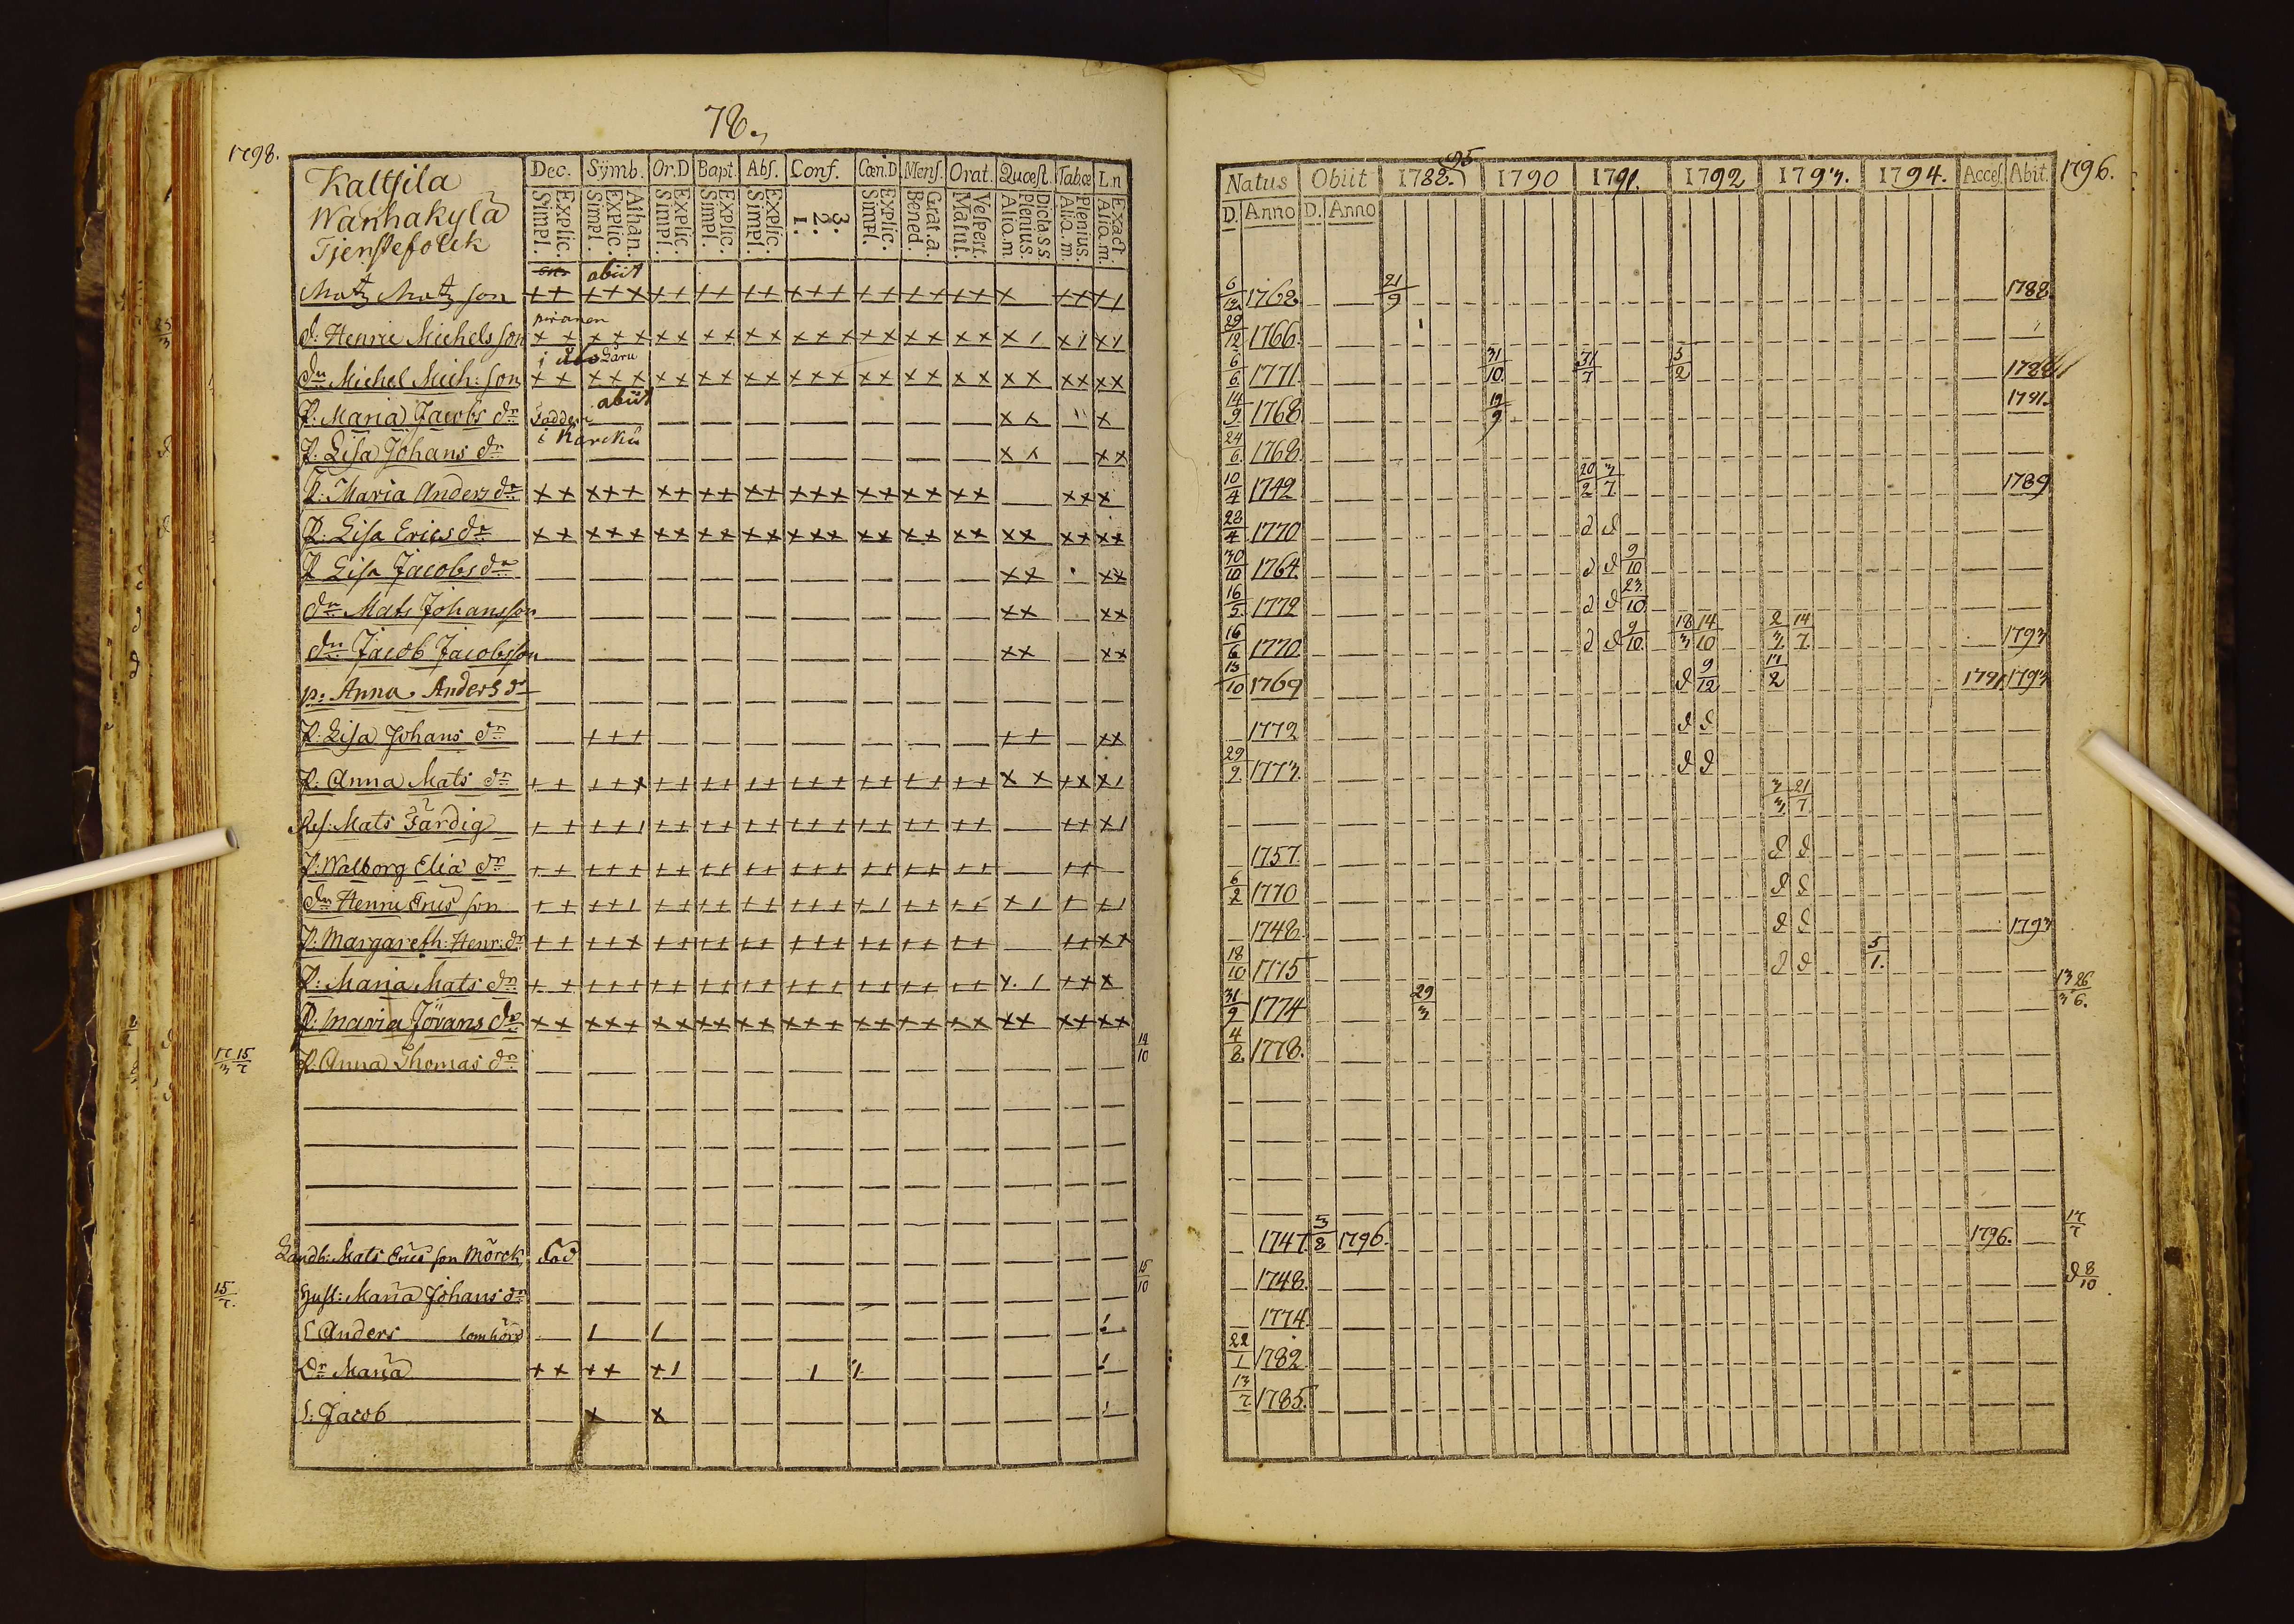 78.
1798.
Kaltsila
Wanhakylä
Tjenstefolck
Dec. Symb. Or.D Bapt. Abs. Conf. Cœn.D Mens. Orat. Quæst. Tabæ Ln
Explic. Simpl. Athan. Explic. Simpl. Explic. Simpl. Explic. Simpl. Explic. Simpl. 3. 2. 1. Explic. Simpl. Grat.a. Bened. Vespert. Matut. Dicta.s.s. Plenius. Alio.m Plenius. Alio.m. Exact. Alio.m.
abiit
Matz Matz son
d: Henric Michels son
dn Michel Mich: son
abiit
P. Maria Jacobs dr
i Karcku
P: Lisa Johans dr
P: Maria Anders dr
P: Lisa Erics dr
P Lisa Jacobs dr
dn Mats Johansson
dn Jacob Jacobsson
p. Anna Anders dr
P: Lisa Johans dr
P: Anna Mats dr
Mats Färdig
P: Walborg Elia dr
dn Henric Erics son
P: Margareth: Henr: dr
P: Maria Mats dr
P: Maria Jövans dr
P. Anna Thomas dr
Landb: Mats Erics son Mörck död
Hust: Maria Johans dr
S Anders
Dr Maria
S: Jacob
Natus Obiit 1788. 95 1790 1791. 1792 1793. 1794. Acces. Abit. 1796.
D. Anno D. Anno
6/12 1768 21/9 1788
29/12 1766
6/6 1771 31/10 31/7 5/2 1788
14/9 1768 19/9 1791.
24/6 1768
10/4 1742 20/2 3/7 1789
28/4 1770 d d
30/10 1764 d d 9/10
16/5 1772 d d 23/10
16/6 1770 d d 9/10 18/3 14/10 2/3 14/7 1793
13/10 1769 d 9/12 17/2 1791 1793
1772 d d
29/9 1773 d d
3/3 21/7
1757 d d
6/2 1770 d d
1748 d d 1793
18/10 1775 d d 5/1
31/9 1774 29/3 13/3 26/6
4/8 1778
1747 3/8 1796. 1796. 17/7
1748 d 8/10
1774
22/1 1782
13/7 1785